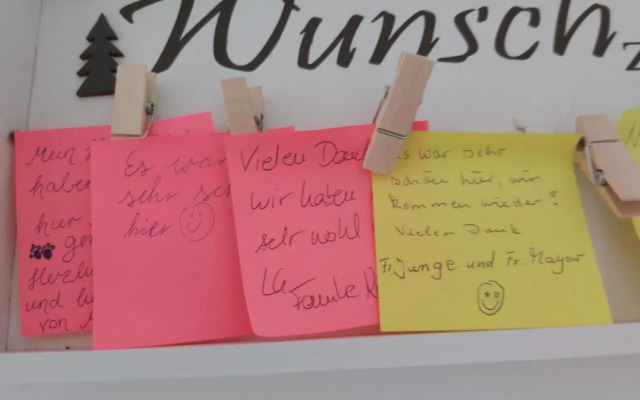 Wunsch
Mein
haben
hier
Herzli
und
von
Es war
sehr sch
hier
Vielen Dan
wir haben
sehr wohl
LG
Familie
Es war sehr
schön hier, wir
kommen wieder!
Vielen Dank
Fr. Junge und Fr. Mayer